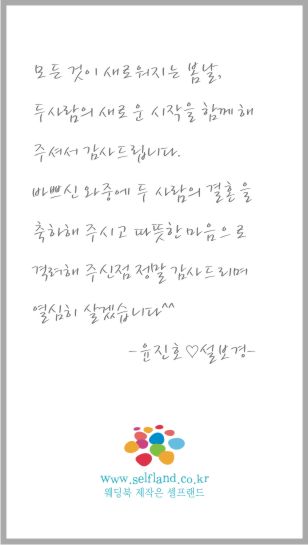 모든 것이 새로워지는 봄날,
두사람의 새로운 시작을 함께 해
주셔서 감사드립니다.
바쁘신 와중에 두 사람의 결혼을
축하해 주시고 따뜻한 마음으로
격려해 주신점 정말 감사드리며
열심히 살겠습니다^^
-윤진호♡설보경-
www.selfland.co.kr
웨딩북 제작은 셀프랜드